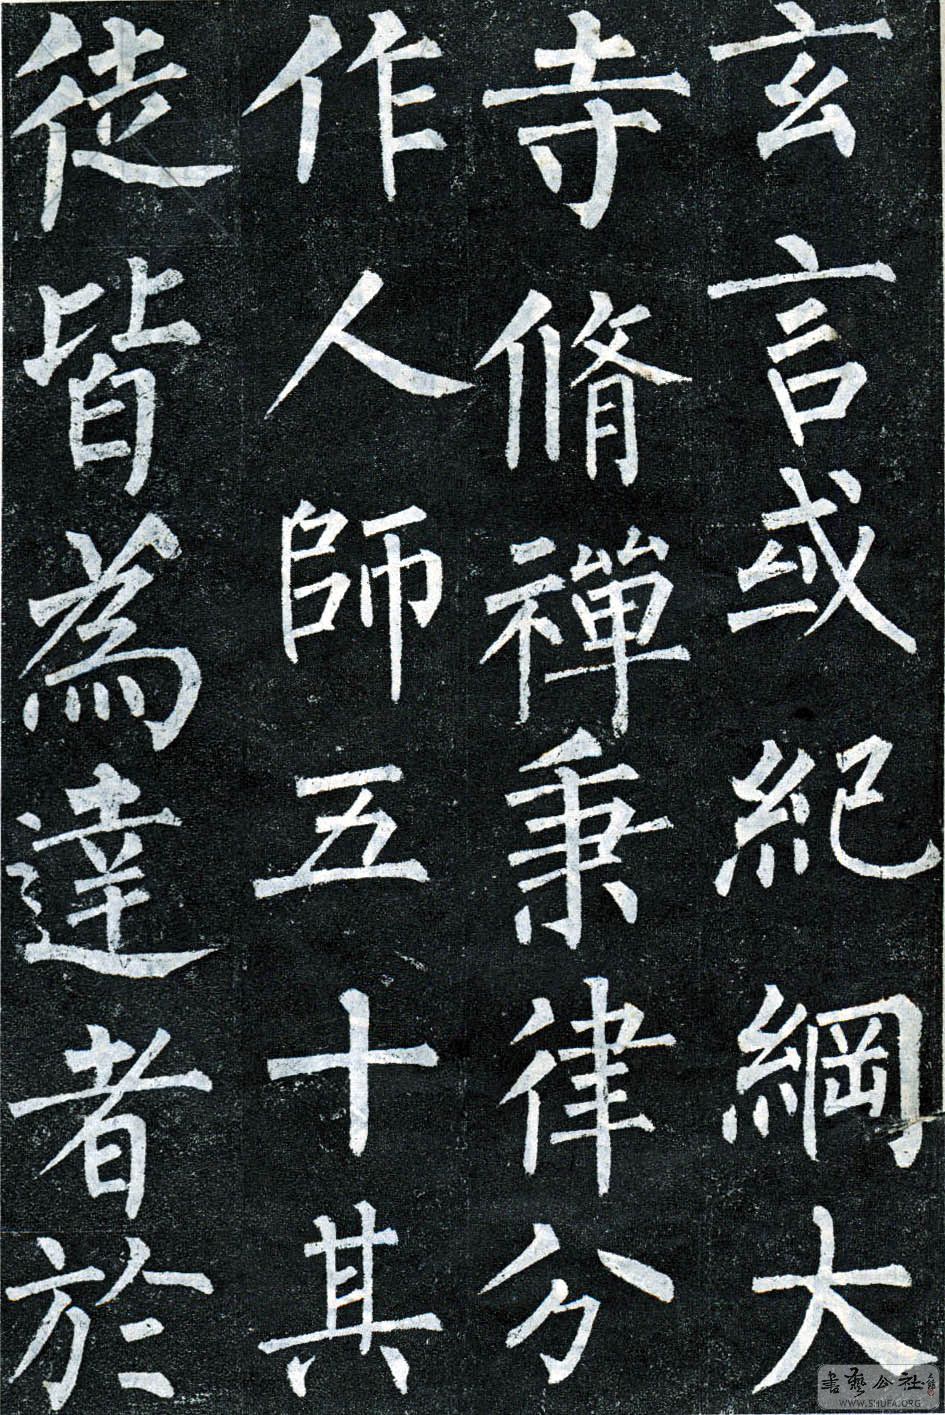 玄言或紀綱大
寺脩禪秉律分
作人師五十其
徒皆為達者於
書藝公社
WWW.SHUFA.ORG